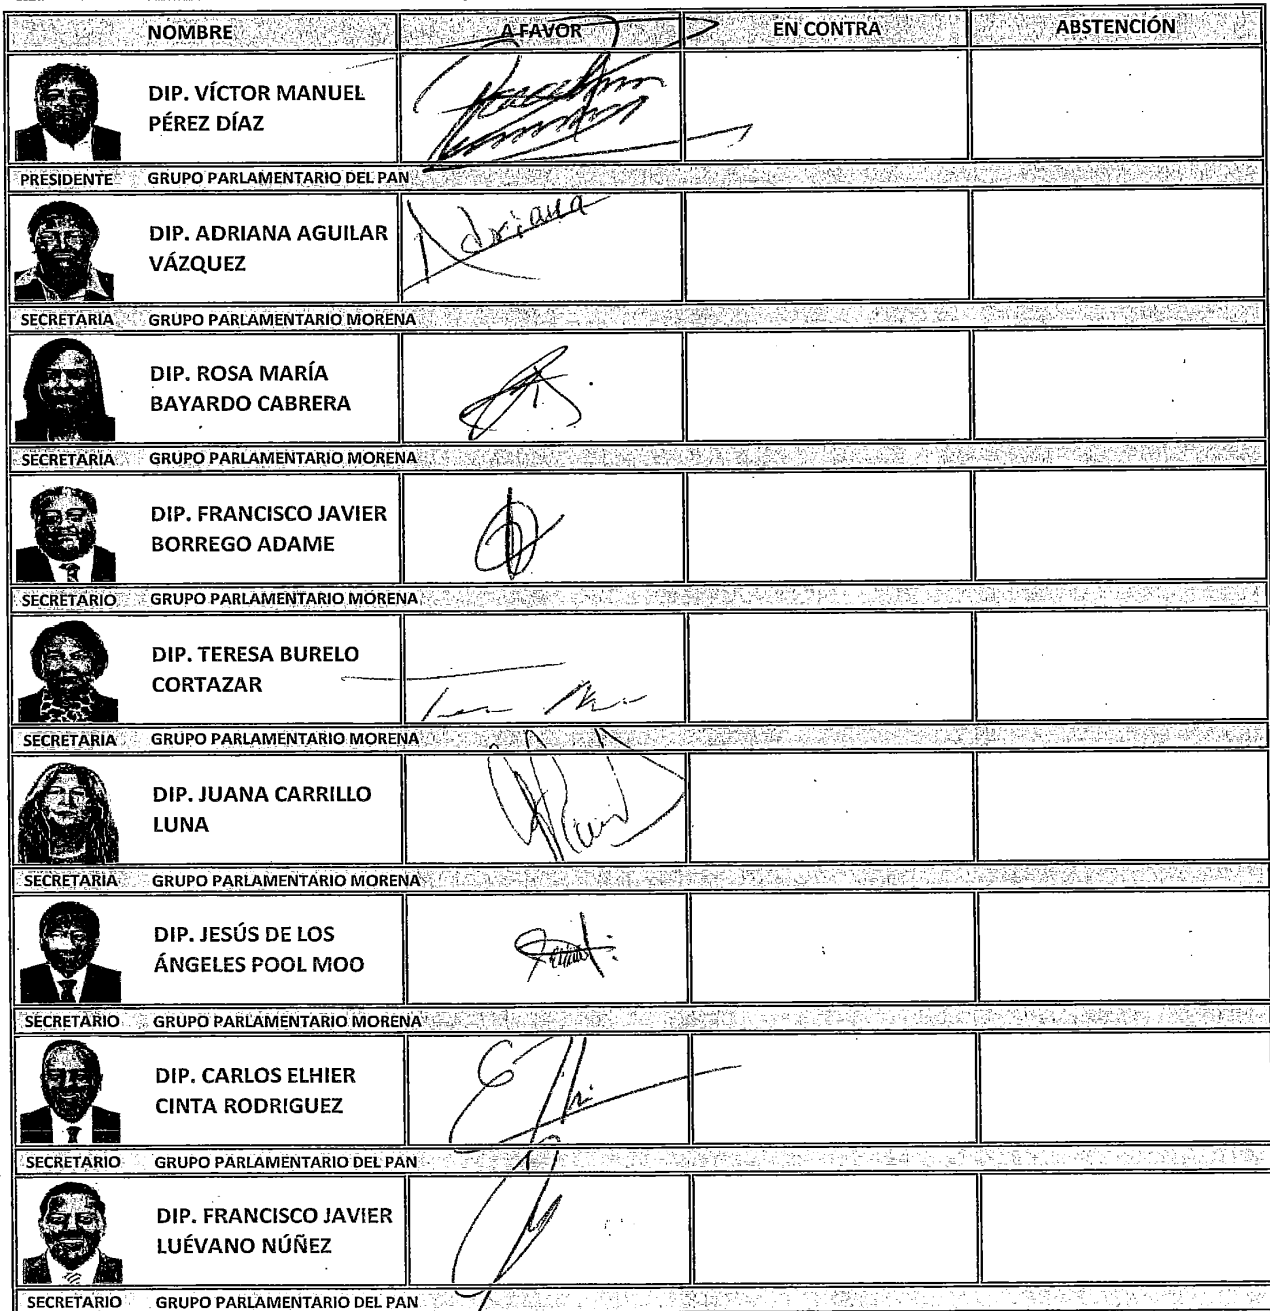 NOMBRE A FAVOR EN CONTRA ABSTENCIÓN
DIP. VÍCTOR MANUEL
PÉREZ DÍAZ
PRESIDENTE GRUPO PARLAMENTARIO DEL PAN
DIP. ADRIANA AGUILAR
VÁZQUEZ
Adriana
SECRETARIA GRUPO PARLAMENTARIO MORENA
DIP. ROSA MARÍA
BAYARDO CABRERA
SECRETARIA GRUPO PARLAMENTARIO MORENA
DIP. FRANCISCO JAVIER
BORREGO ADAME
SECRETARIO GRUPO PARLAMENTARIO MORENA
DIP. TERESA BURELO
CORTAZAR
SECRETARIA GRUPO PARLAMENTARIO MORENA
DIP. JUANA CARRILLO
LUNA
SECRETARIA GRUPO PARLAMENTARIO MORENA
DIP. JESÚS DE LOS
ÁNGELES POOL MOO
SECRETARIO GRUPO PARLAMENTARIO MORENA
DIP. CARLOS ELHIER
CINTA RODRIGUEZ
SECRETARIO GRUPO PARLAMENTARIO DEL PAN
DIP. FRANCISCO JAVIER
LUÉVANO NÚÑEZ
SECRETARIO GRUPO PARLAMENTARIO DEL PAN